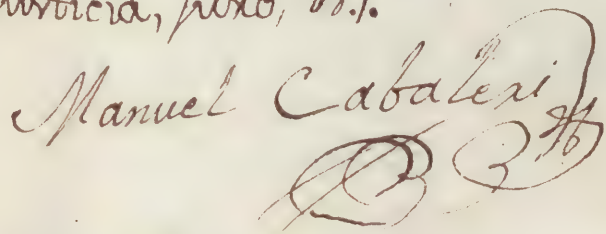 justicia, juro, &c.
Manuel Cabaleri